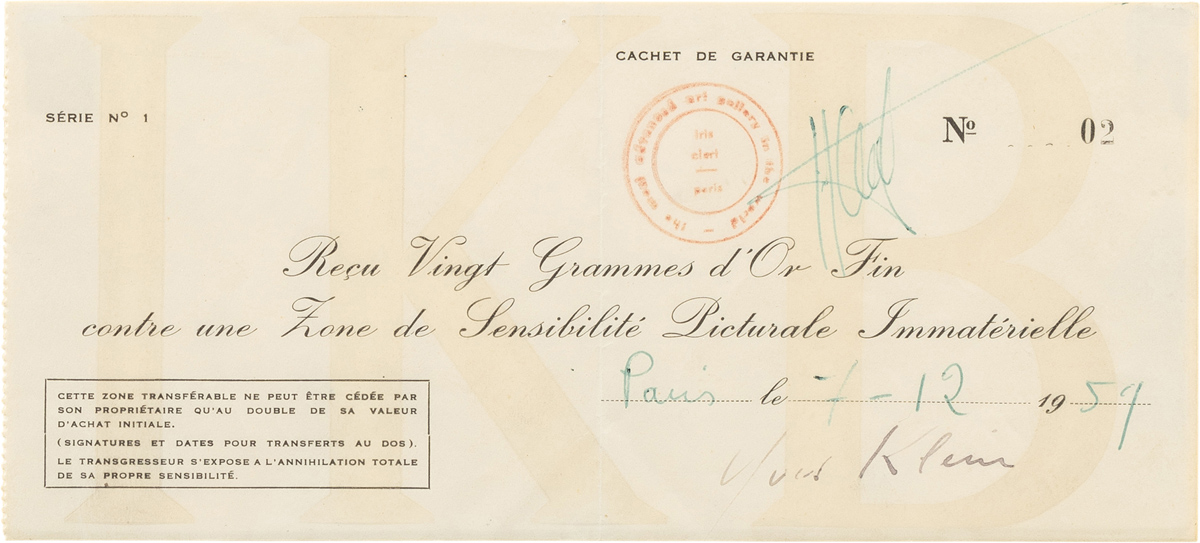 IKB
CACHET DE GARANTIE
SÉRIE Nº 1
the most advanced art gallery in the world –
iris
clert
paris
Nº 02
Reçu Vingt Grammes d'Or Fin
contre une Zone de Sensibilité Picturale Immatérielle
Paris le 7 - 12 1959
CETTE ZONE TRANSFÉRABLE NE PEUT ÊTRE CÉDÉE PAR
SON PROPRIÉTAIRE QU'AU DOUBLE DE SA VALEUR
D'ACHAT INITIALE.
(SIGNATURES ET DATES POUR TRANSFERTS AU DOS).
LE TRANSGRESSEUR S'EXPOSE A L'ANNIHILATION TOTALE
DE SA PROPRE SENSIBILITÉ.
Yves Klein